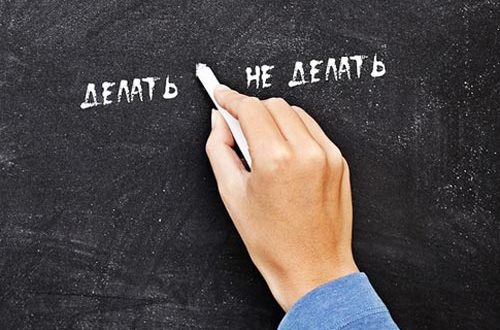 ДЕЛАТЬ НЕ ДЕЛАТЬ